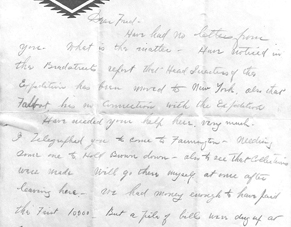 Dear Fred-
Have had no letters from
you. What is the matter - Have noticed in
the Bradstreets report that Head Directors of the
Exposition has been moved to New York. also that
Talbot has no Connection with the Exposition
Have needed your help here very much.
I Telegraphed you to come to Farmington - Needing
some one to Hold Brown down - also to see that Collections
were made. Will go there myself at once after
leaving here - We had money enough to have paid
the First 10000. But a pile of bills was dug up at